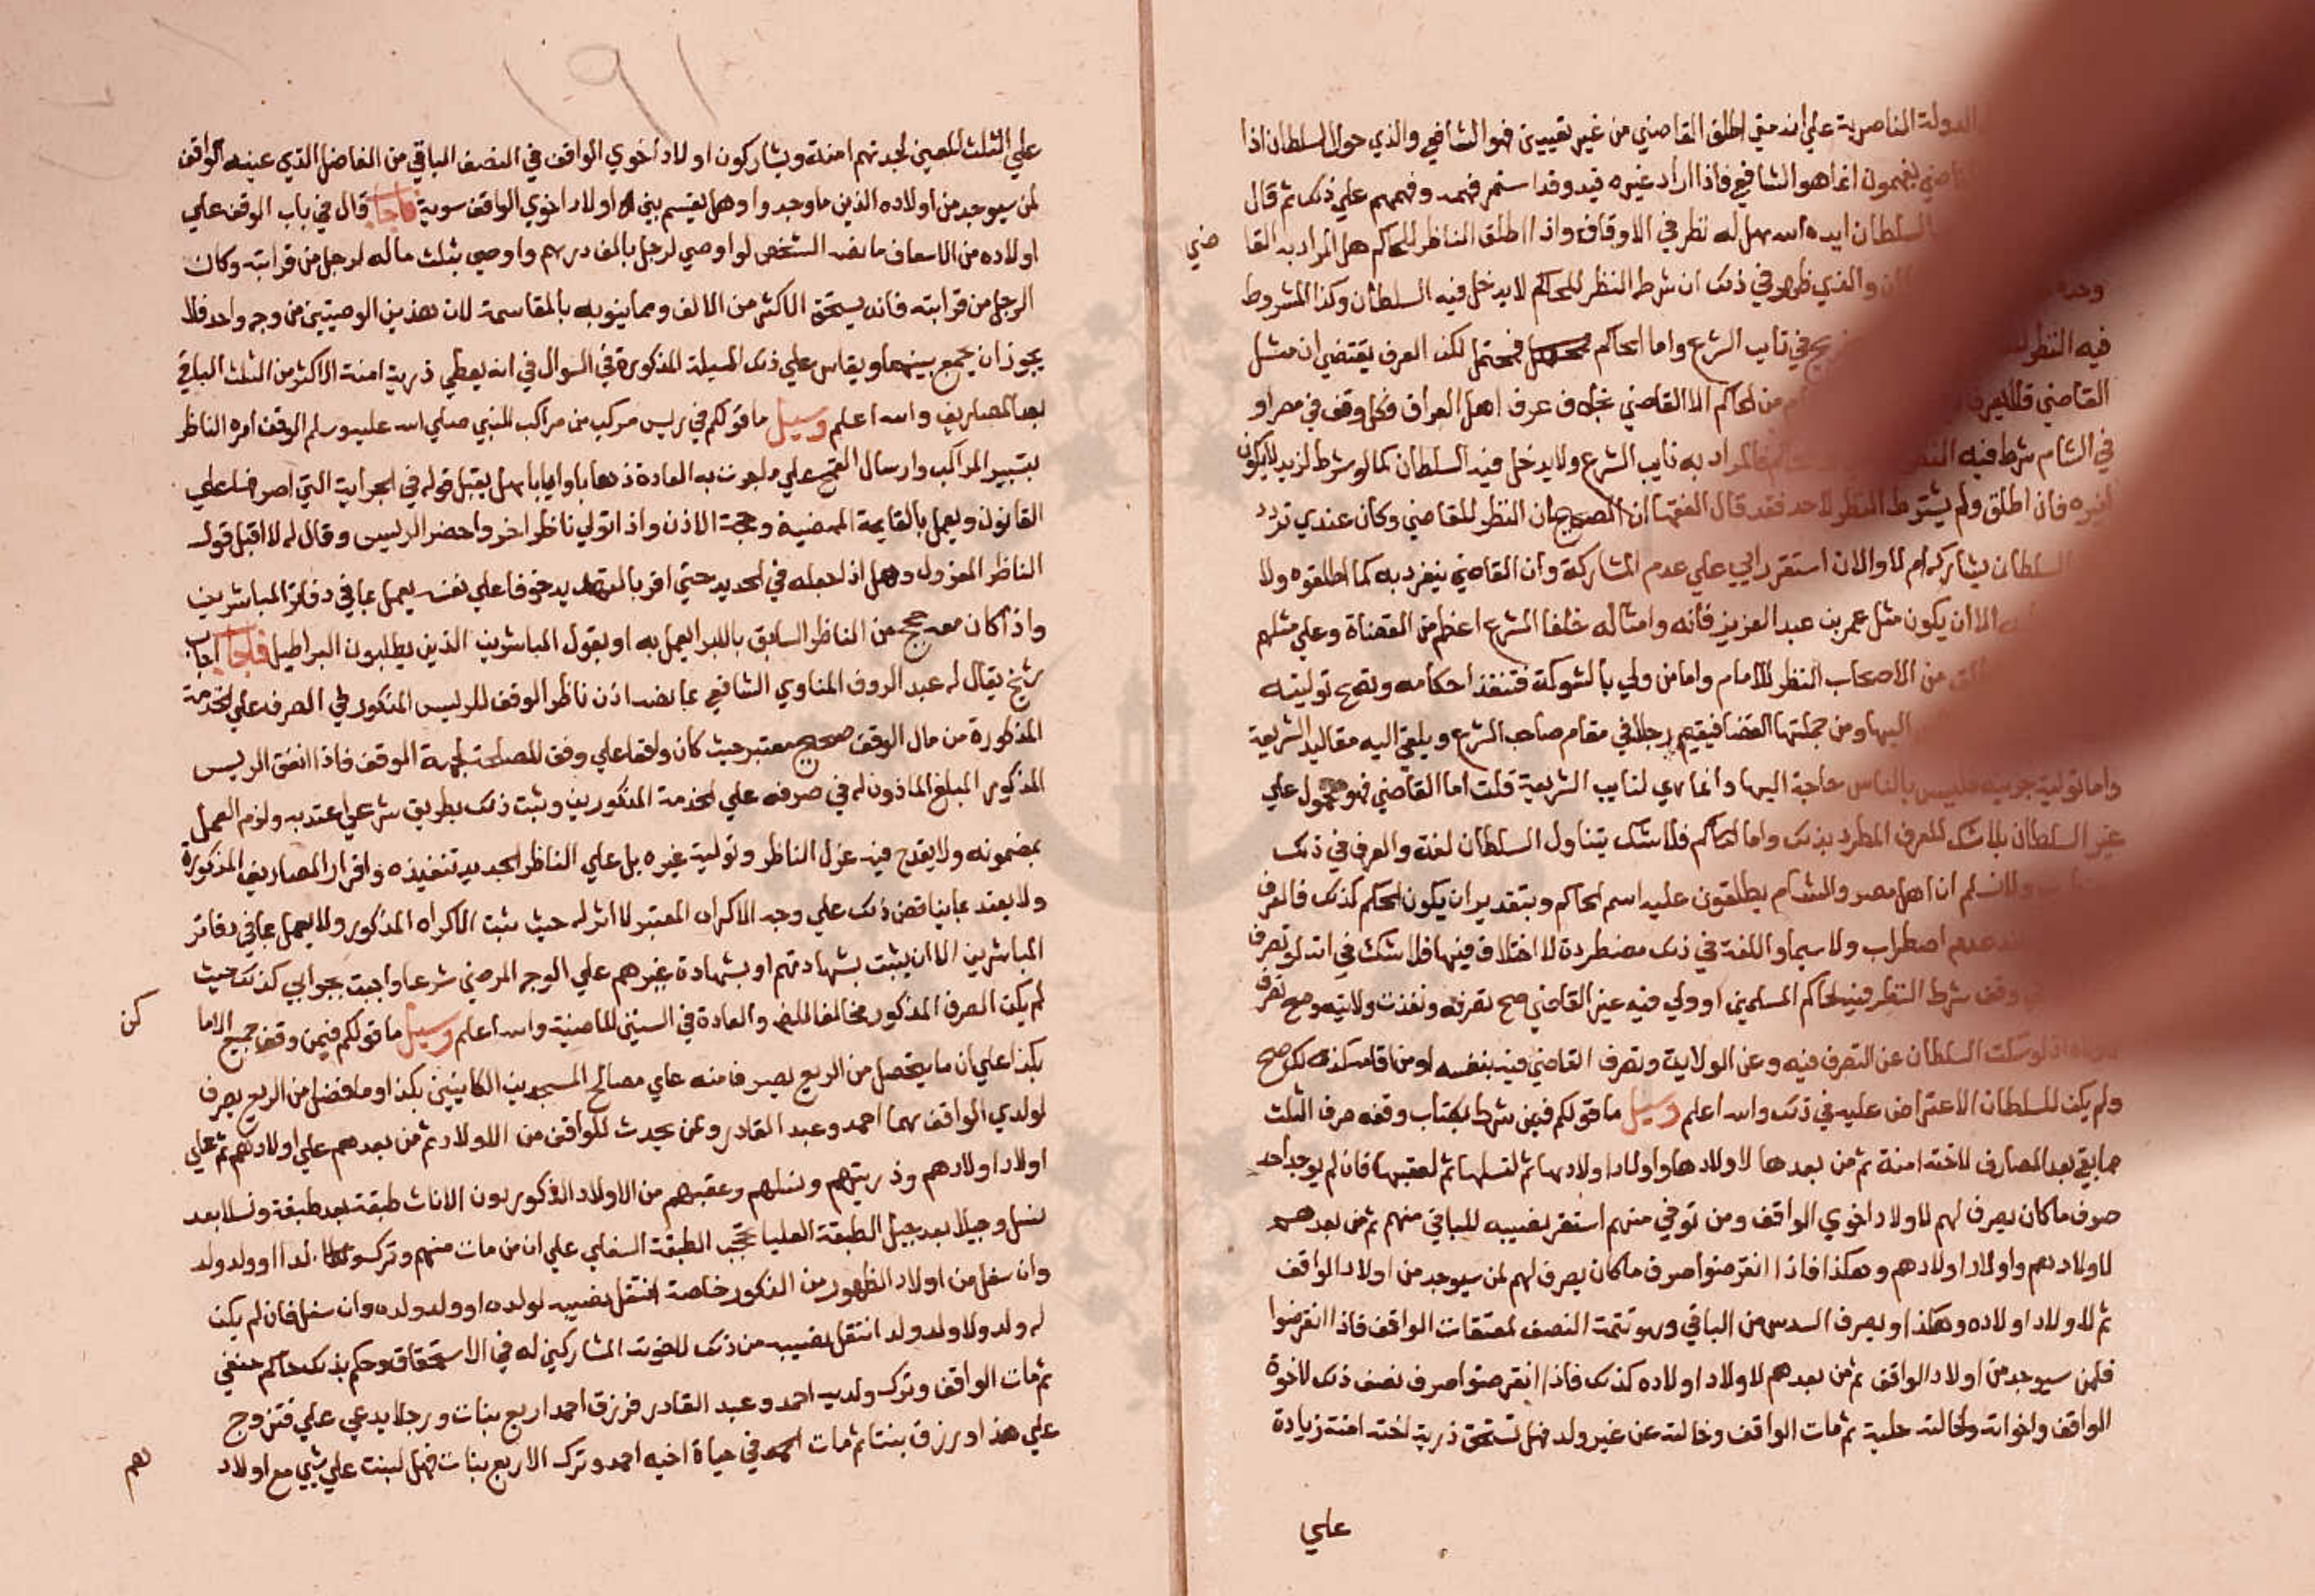 الدولة الناصرية علي انه متي اطلق القاضي من غير تعيين فهو الشافعي والذي حول السلطان اذا
يفهمون انما هو الشافعي فاذا اراد غيره قيد وقد استمر فهمه وفهمهم علي ذلك ثم قال
السلطان ايده الله هل له نظر في الاوقاف واذا اطلق الناظر للحاكم هل المراد به القا
ضي
والذي ظهر في ذلك ان شرط النظر للحاكم لا يدخل فيه السلطان وكذا المشروط
فيه النظر في نايب الشرع واما الحاكم فيحتمل لكن العرف يقتضي ان مثل
القاضي من الحاكم الا القاضي بخلاف عرف اهل العراق فكل وقف في مصر او
في الشام شرط فيه فالمراد به نايب الشرع ولا يدخل فيه السلطان كما لو شرط لزيد لا يكون
لغيره فان اطلق ولم يشترط النظر لاحد فقد قال الفقها ان الصحيح ان النظر للقاضي وكان عندي تردد
السلطان يشاركه ام لا والان استقر رايي علي عدم المشاركة وان القاضي ينفرد به كما اطلقوه ولا
الا ان يكون مثل عمر بن عبد العزيز فانه وامثاله خلفا الشرع اعظم من القضاة وعلي مثلهم
من الاصحاب النظر للامام واما من ولي بالشوكة فتنفذ احكامه وتصح توليته
اليها ومن جملتها القضا فيقيم رجلا في مقام صاحب الشرع ويلقي اليه مقاليد الشريعة
واما تولية جزييه فليس بالناس حاجة اليها وانما هي لنايب الشريعة قلت اما القاضي فهو محمول علي
غير السلطان بلا شك للعرف المطرد بذلك واما الحاكم فلا شك يتناول السلطان لغة والعرف في ذلك
ولا نسلم ان اهل مصر والشام يطلقون عليه اسم الحاكم وبتقدير ان يكون الحكم كذلك فالعرف
عدم اضطراب ولا سيما واللغة في ذلك مضطردة لا اختلاف فيها فلا شك في انه لو تصرف
وقف شرط النظر فيه لحاكم المسلمين او ولي فيه غير القاضي صح تصرفه ونفذت ولايته وصح تصرف
لو سكت السلطان عن التصرف فيه وعن الولاية وتصرف القاضي فيه بنفسه او من اقامه كذلك صح
ولم يكن للسلطان الاعتراض عليه في ذلك والله اعلم وسيل ما قولكم فيمن شرط بكتاب وقفه صرف الثلث
مما بقي بعد المصارف لاخته امنة ثم من بعدها لاولادها واولاد اولادها ثم لنسلها ثم لعقبها فان لم يوجد احد
صرف ما كان يصرف لهم لاولاد اخوي الواقف ومن توفي منهم استقر نصيبه للباقي منهم ثم من بعدهم
لاولادهم واولاد اولادهم وهكذا فاذا انقرضوا صرف ما كان يصرف لهم لمن سيوجد من اولاد الواقف
ثم لاولاد اولاده وهكذا ويصرف السدس من الباقي وهو تتمة النصف لمعتقات الواقف فاذا انقرضوا
فلمن سيوجد من اولاد الواقف ثم من بعدهم لاولاد اولاده كذلك فاذا انقرضوا صرف نصف ذلك لاخوة
الواقف واخواته ولخالته حلية ثم مات الواقف وخالته عن غير ولد فهل تستحق ذرية اخته امنة زيادة
علي
١٩١
علي الثلث المعين لجدتهم امنة ويشاركون اولاد اخوي الواقف في النصف الباقي من الفاضل الذي عينه الواقف
لمن سيوجد من اولاده الذين ما وجدوا وهل يقسم بينهم اولاد اخوي الواقف سوية فاجاب قال في باب الوقف علي
اولاده من الاسعاف ما نصه الشخص لو اوصي لرجل بالف درهم واوصي بثلث ماله لرجل من قرابته وكان
الرجل من قرابته فانه يستحق الاكثر من الالف ومما ينوبه بالمقاسمة لان هذين الوصيتين من وجه واحد فلا
يجوز ان يجمع بينهما ويقاس علي ذلك المسيلة المذكورة في السوال في انه يعطي ذرية امنة الاكثر من الثلث الباقي
بعد المصاريف والله اعلم وسيل ما قولكم في ريس مركب من مراكب للنبي صلي الله عليه وسلم الوقف امره الناظر
بتسيير المراكب وارسال القمح علي ما جرت به العادة ذهابا وايابا هل يقبل قوله في الجراية التي اصرفها علي
القانون ويعمل بالقايمة الممضية وحجة الاذن واذا تولي ناظر اخر واحضر الريس وقال له لا اقبل قول
الناظر المعزول وهل اذا جعله في الحديد حتي اقر بالتهديد خوفا علي نفسه يعمل بما في دفاتر المباشرين
واذا كان معه حجج من الناظر السابق بالابرا يعمل به او بقول المباشرين الذين يطلبون البراطيل فاجا اجاب
شيخ يقال له عبد الروف المناوي الشافعي بما نصه اذن ناظر الوقف للريس المذكور في الصرف علي الخدمة
المذكورة من مال الوقف صحيح معتبر حيث كان واقعا علي وفق المصلحة لجهة الوقف فاذا انفق الريس
المذكور المبلغ الماذون له في صرفه علي الخدمة المذكورين وثبت ذلك بطريق شرعي اعتد به ولزم العمل
بمضمونه ولا يقدح فيه عزل الناظر وتولية غيره بل علي الناظر الجديد تنفيذه واقرار المصاريف المذكورة
ولا يعتد بما يناقض ذلك علي وجه الاكراه المعتبر لا اثر له حيث ثبت الاكراه المذكور ولا يعمل بما في دفاتر
المباشرين الا ان يثبت بشهادتهم او بشهادة غيرهم علي الوجه المرضي شرعا واجبت بجوابي كذلك حيث
لم يكن الصرف المذكور مخالفا للشرط والعادة في السنين الماضية والله اعلم وسيل ما قولكم فيمن وقف جميع الاما
كن
بكذا علي ان ما يتحصل من الريع يصرف منه علي مصالح المسجدين الكاينين بكذا وما فضل من الريع يصرف
لولدي الواقف هما احمد وعبد القادر ولمن يحدث للواقف من الاولاد ثم من بعدهم علي اولادهم ثم علي
اولاد اولادهم وذريتهم ونسلهم وعقبهم من الاولاد الذكور دون الاناث طبقة بعد طبقة ونسلا بعد
نسل وجيلا بعد جيل الطبقة العليا تحجب الطبقة السفلي علي ان من مات منهم وترك ولدا او ولد ولد
وان سفل من اولاد الظهور من الذكور خاصة انتقل نصيبه لولده او ولد ولده وان سفل فان لم يكن
له ولد ولا ولد ولد انتقل نصيبه من ذلك لاخوته المشاركين له في الاستحقاق وحكم بذلك حاكم حنفي
ثم مات الواقف وترك ولديه احمد وعبد القادر فرزق احمد اربع بنات ورجلا يدعي علي فتزوج
علي هذا ورزق بنتا ثم مات في حياة اخيه احمد وترك الاربع بنات فهل لبنت علي شي مع اولاد
هم